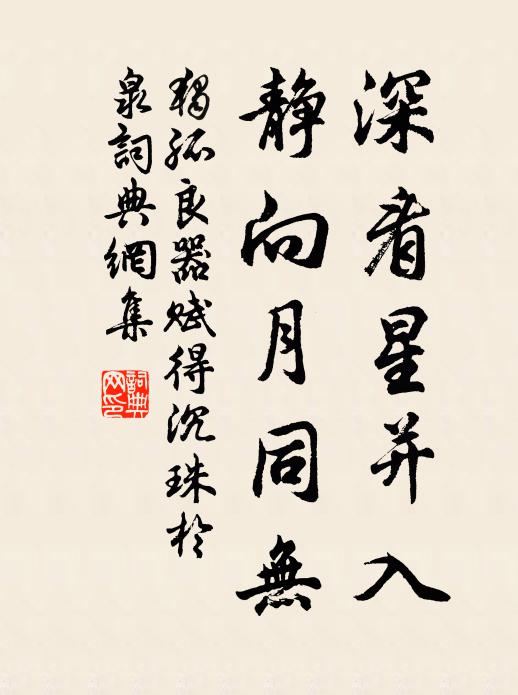 深看星并入
静向月同無
獨孤良器賦得沉珠於
泉詞典網集
詞典
网印